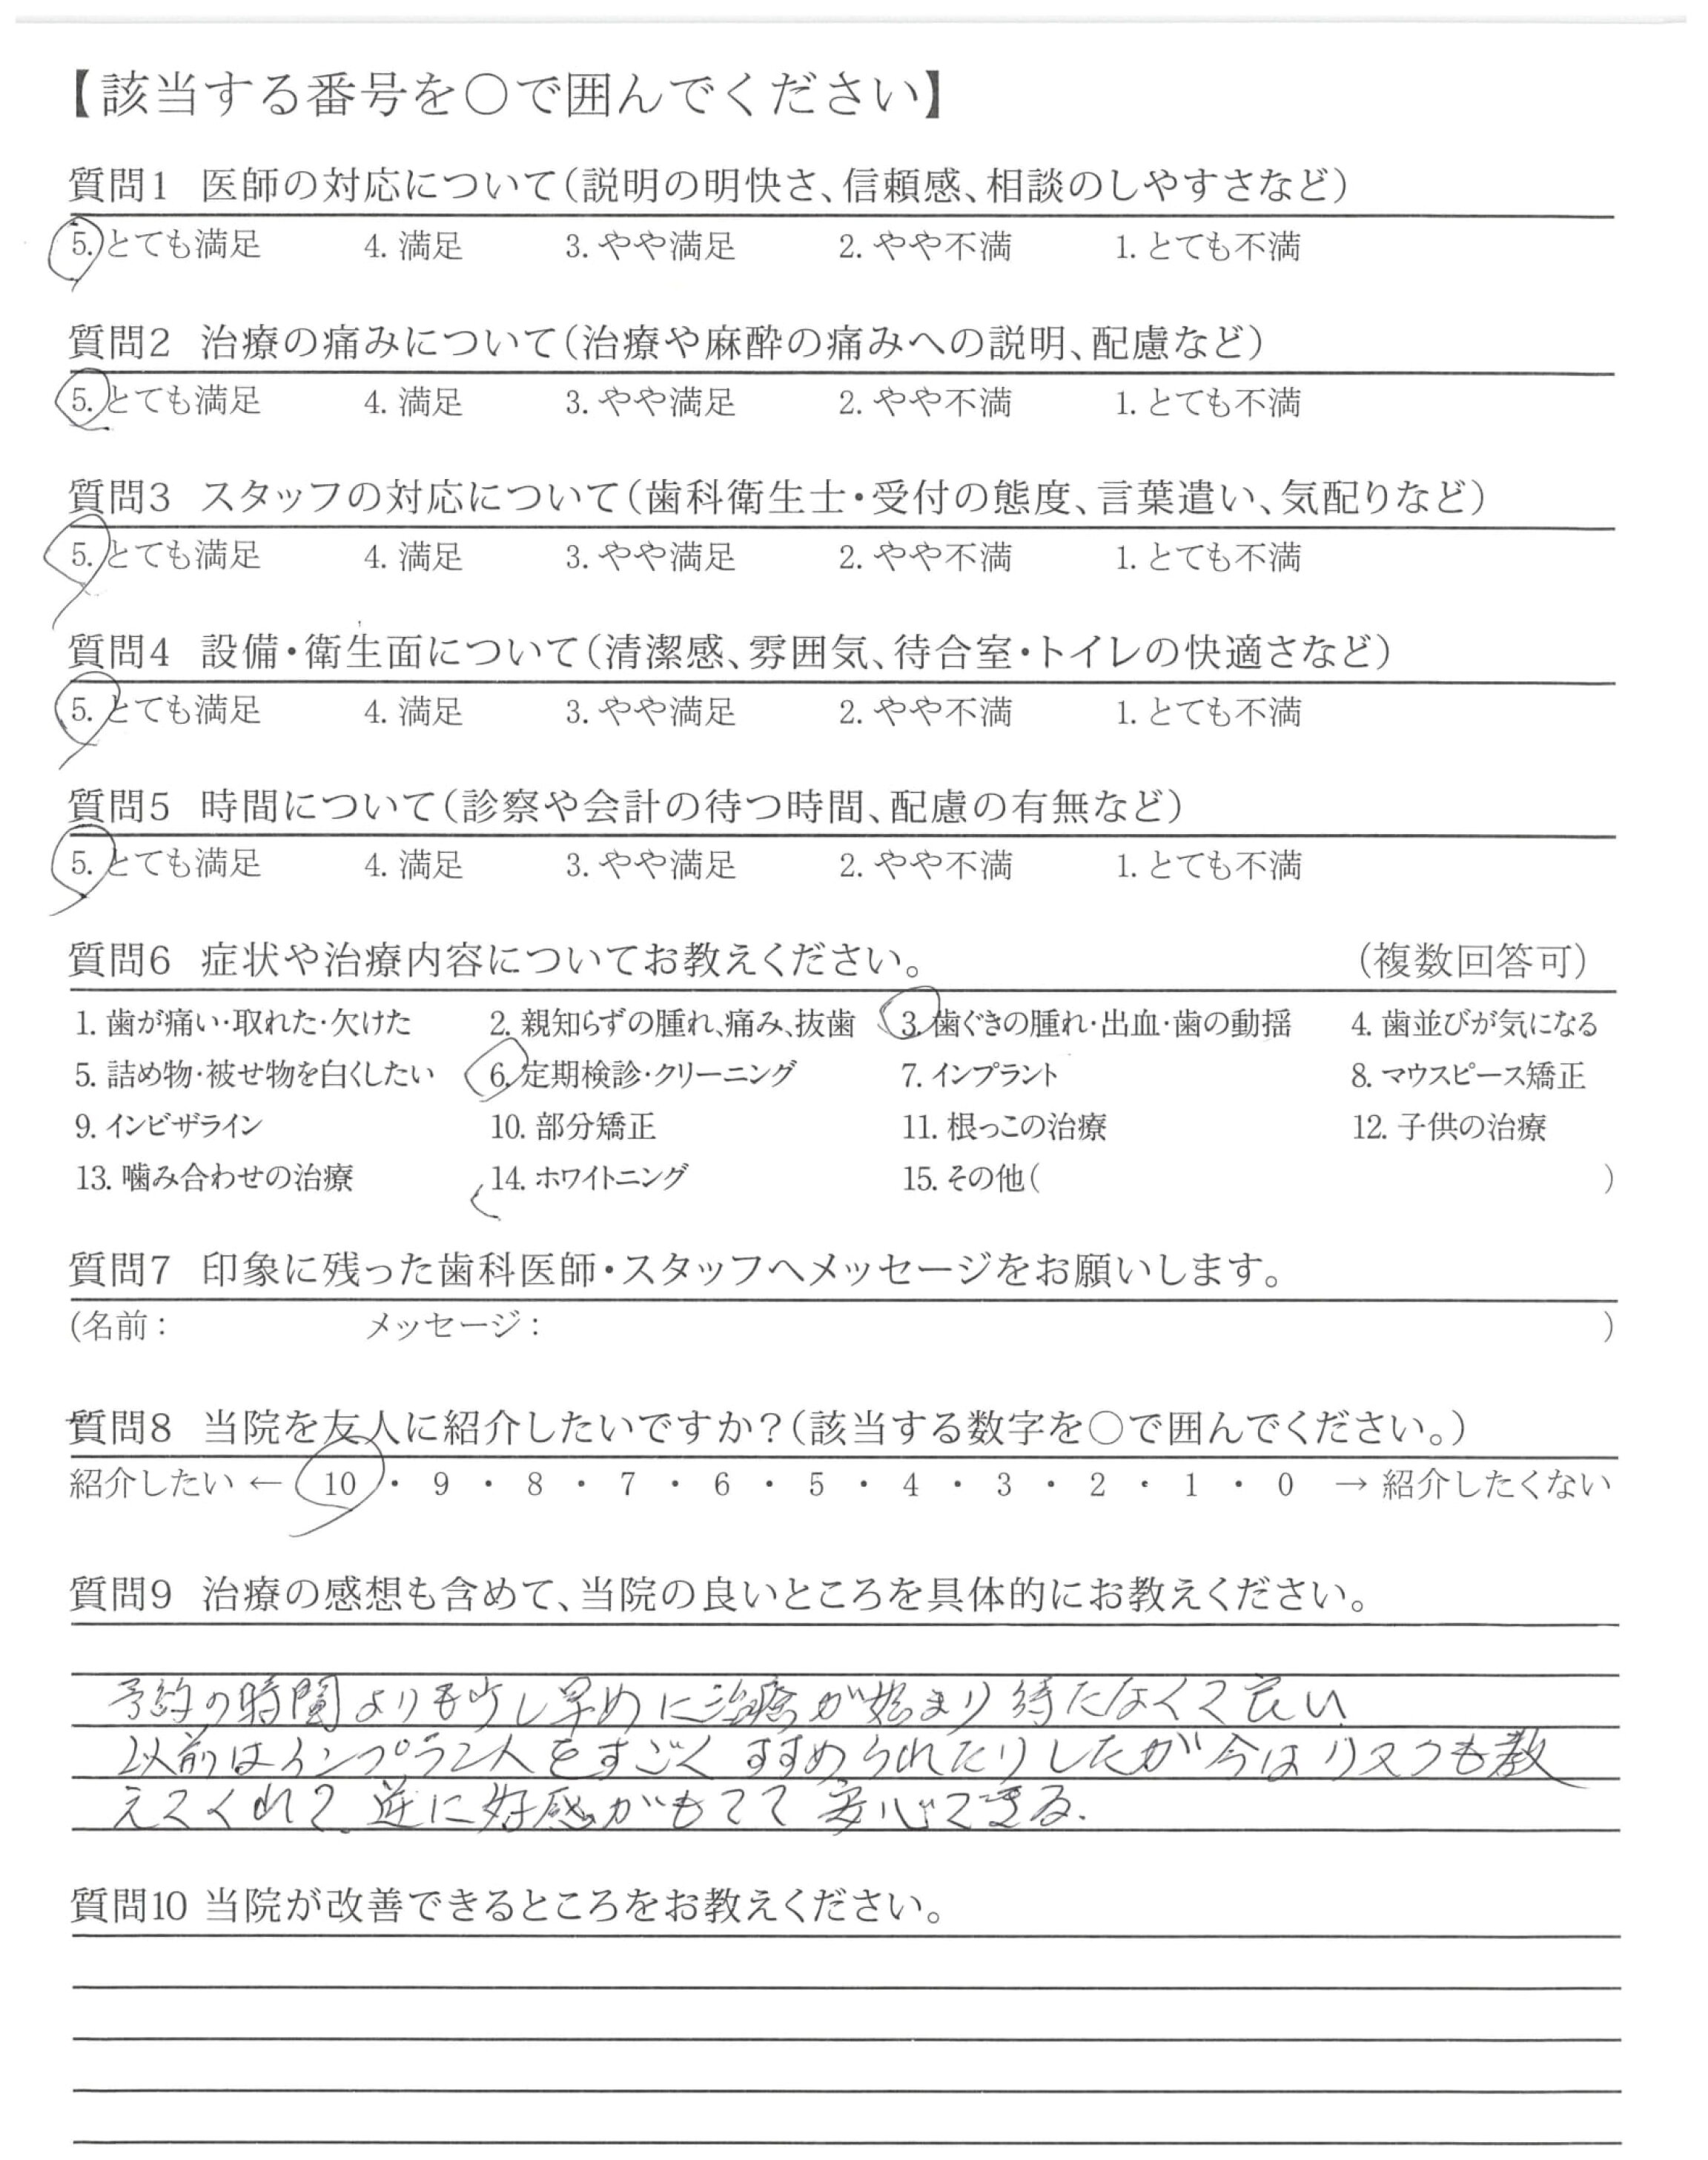 【該当する番号を○で囲んでください】
質問1 医師の対応について(説明の明快さ、信頼感、相談のしやすさなど)
5. とても満足 4. 満足 3. やや満足 2. やや不満 1. とても不満
質問2 治療の痛みについて(治療や麻酔の痛みへの説明、配慮など)
5. とても満足 4. 満足 3. やや満足 2. やや不満 1. とても不満
質問3 スタッフの対応について(歯科衛生士・受付の態度、言葉遣い、気配りなど)
5. とても満足 4. 満足 3. やや満足 2. やや不満 1. とても不満
質問4 設備・衛生面について(清潔感、雰囲気、待合室・トイレの快適さなど)
5. とても満足 4. 満足 3. やや満足 2. やや不満 1. とても不満
質問5 時間について(診察や会計の待つ時間、配慮の有無など)
5. とても満足 4. 満足 3. やや満足 2. やや不満 1. とても不満
質問6 症状や治療内容についてお教えください。 (複数回答可)
1. 歯が痛い・取れた・欠けた 2. 親知らずの腫れ、痛み、抜歯 3. 歯ぐきの腫れ・出血・歯の動揺 4. 歯並びが気になる
5. 詰め物・被せ物を白くしたい 6. 定期検診・クリーニング 7. インプラント 8. マウスピース矯正
9. インビザライン 10. 部分矯正 11. 根っこの治療 12. 子供の治療
13. 噛み合わせの治療 14. ホワイトニング 15. その他( )
質問7 印象に残った歯科医師・スタッフへメッセージをお願いします。
(名前: メッセージ: )
質問8 当院を友人に紹介したいですか?(該当する数字を○で囲んでください。)
紹介したい ← 10 ・ 9 ・ 8 ・ 7 ・ 6 ・ 5 ・ 4 ・ 3 ・ 2 ・ 1 ・ 0 → 紹介したくない
質問9 治療の感想も含めて、当院の良いところを具体的にお教えください。
予約の時間よりも少し早めに治療が始まり待たなくて良い
以前はインプラントをすごくすすめられたりしたが今はリスクも教
えてくれて逆に好感がもてて安心できる.
質問10 当院が改善できるところをお教えください。